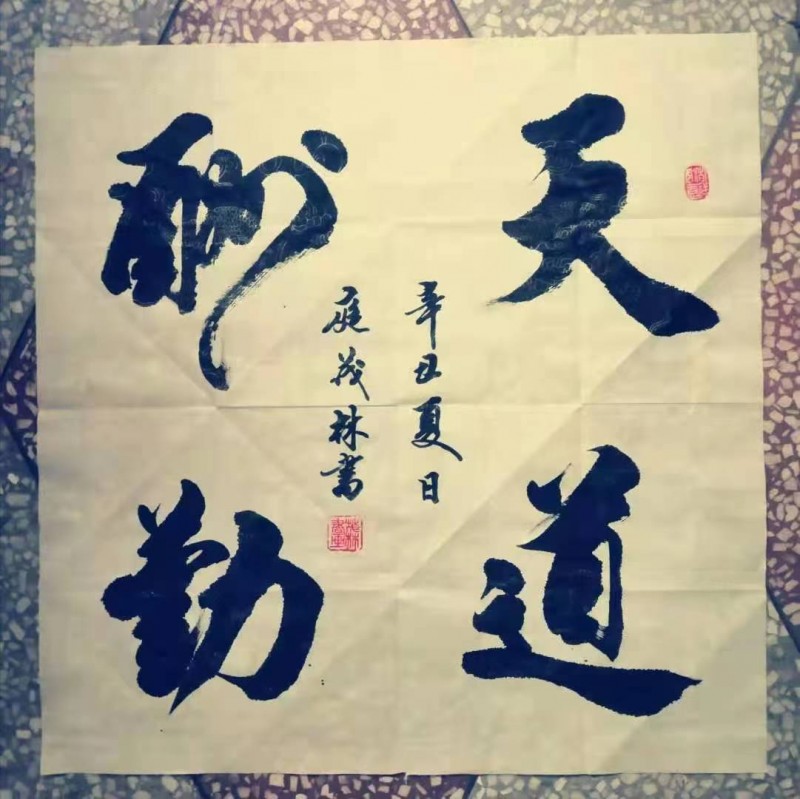 天道
酬勤
辛丑夏日
庭茂林書